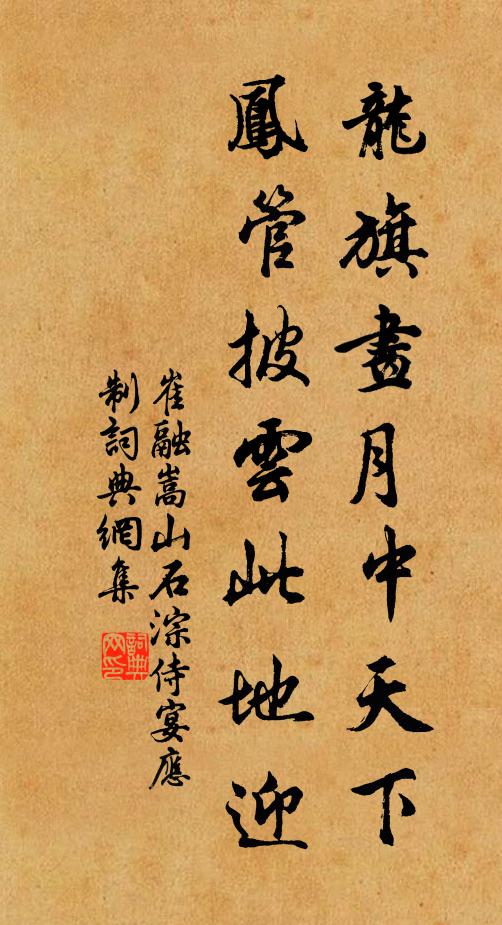 龍旗畫月中天下
鳳管披雲此地迎
崔融嵩山石淙侍宴應
制詞典網集
詞典
网印